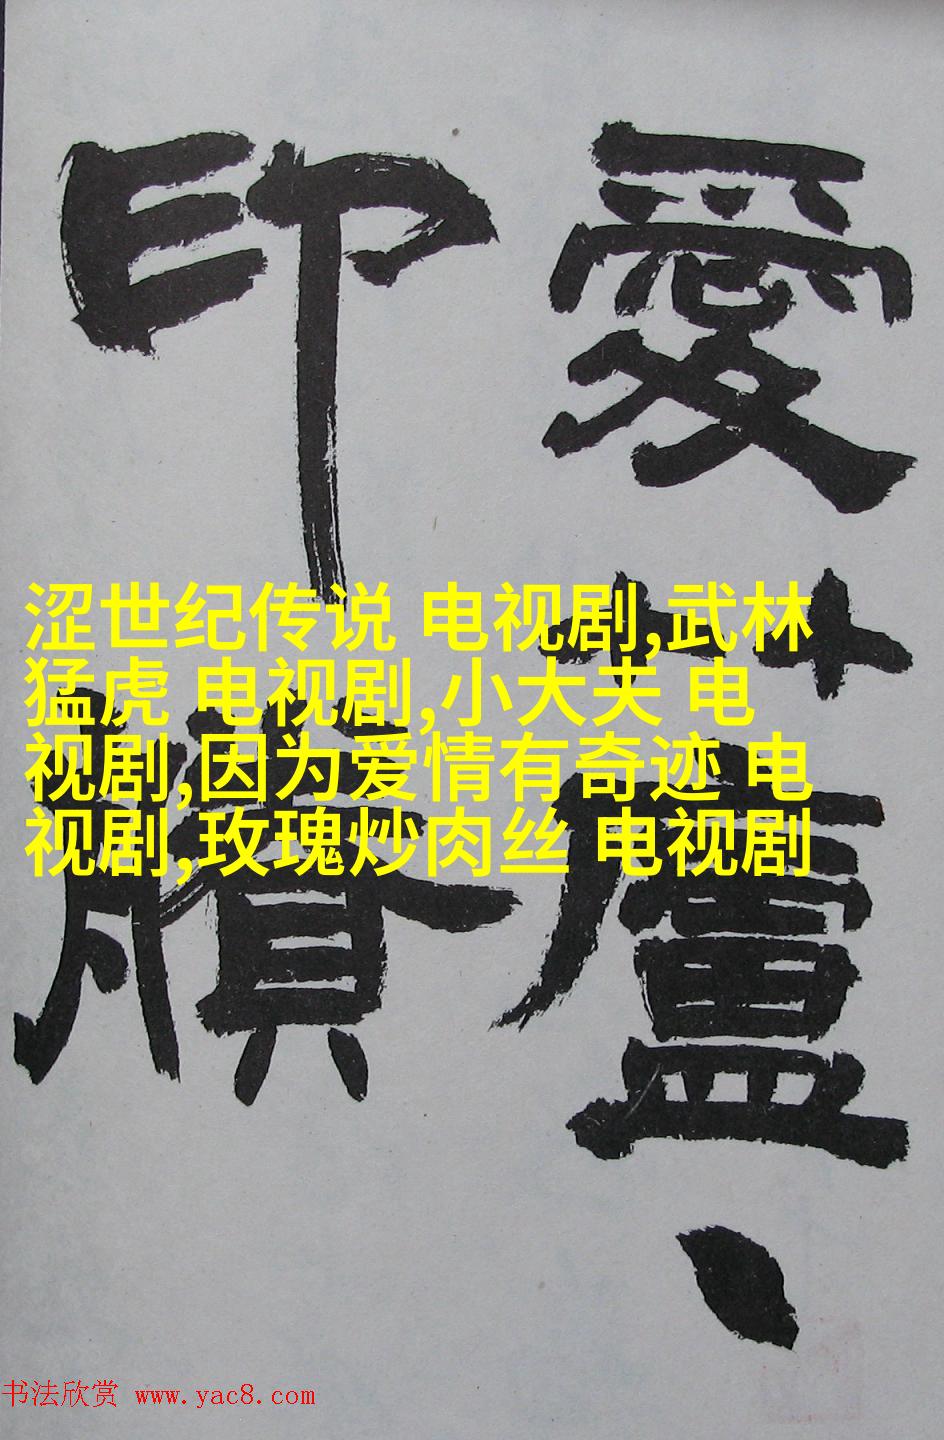 愛蘆、
印賸
涩世纪传说 电视剧,武林
猛虎 电视剧,小大夫 电
视剧,因为爱情有奇迹 电
视剧,玫瑰炒肉丝 电视剧
书法欣赏 www.yac8.com